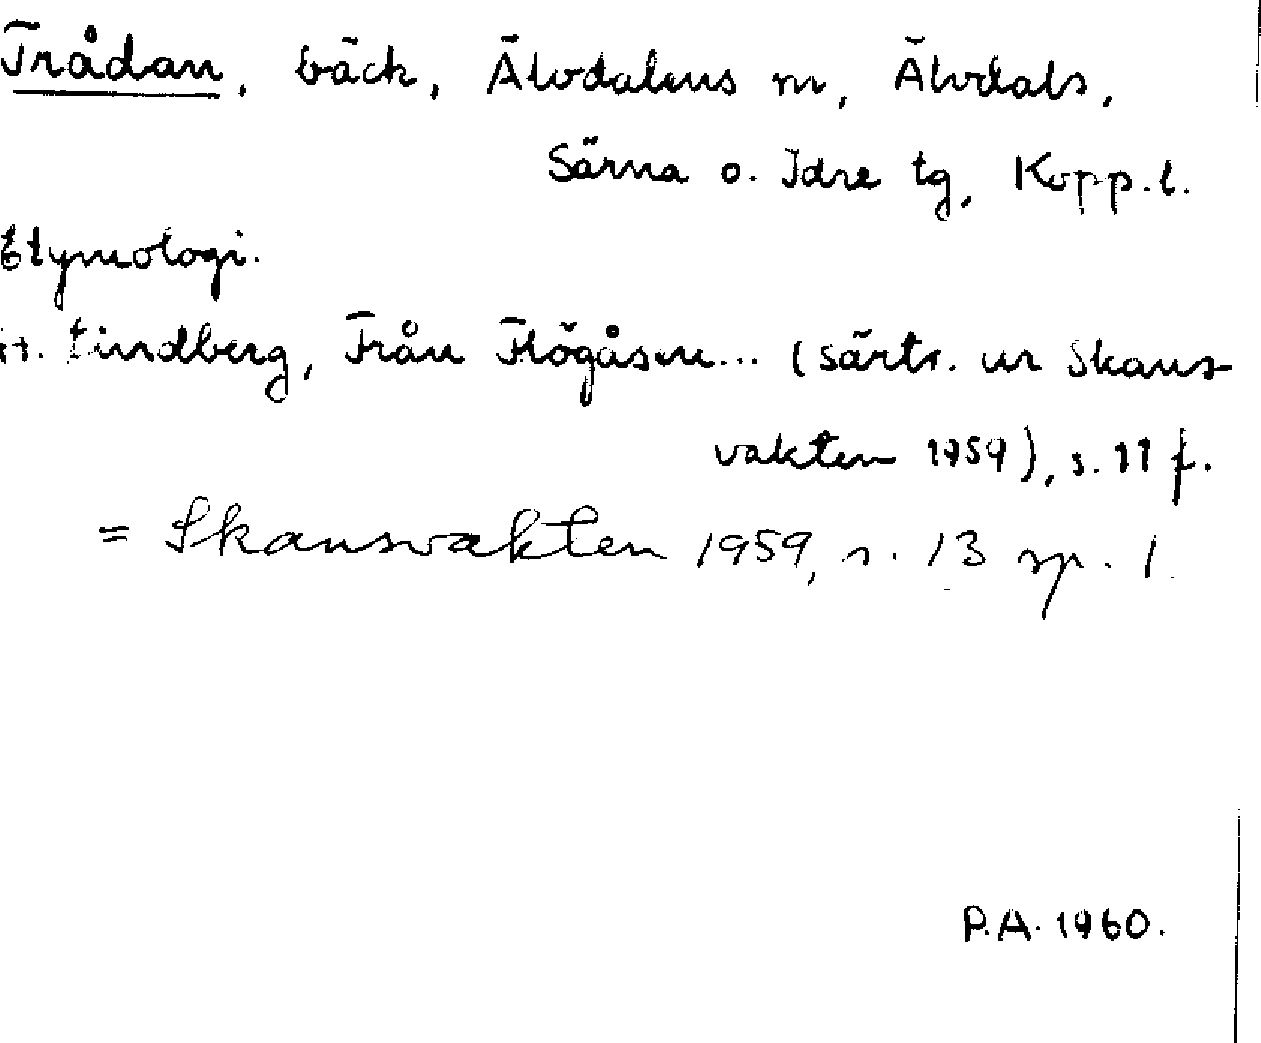 Trådan, bäck, Älvdalens sn, Älvdals,
Särna o. Idre tg, Kopp. l.
Etymologi.
H. Lindberg, Från Flögåsen... (särtr. ur Skans-
vakten 1959), s. 11 f.
= Skansvakten 1959, s. 13 sp. 1.
P.A. 1960.